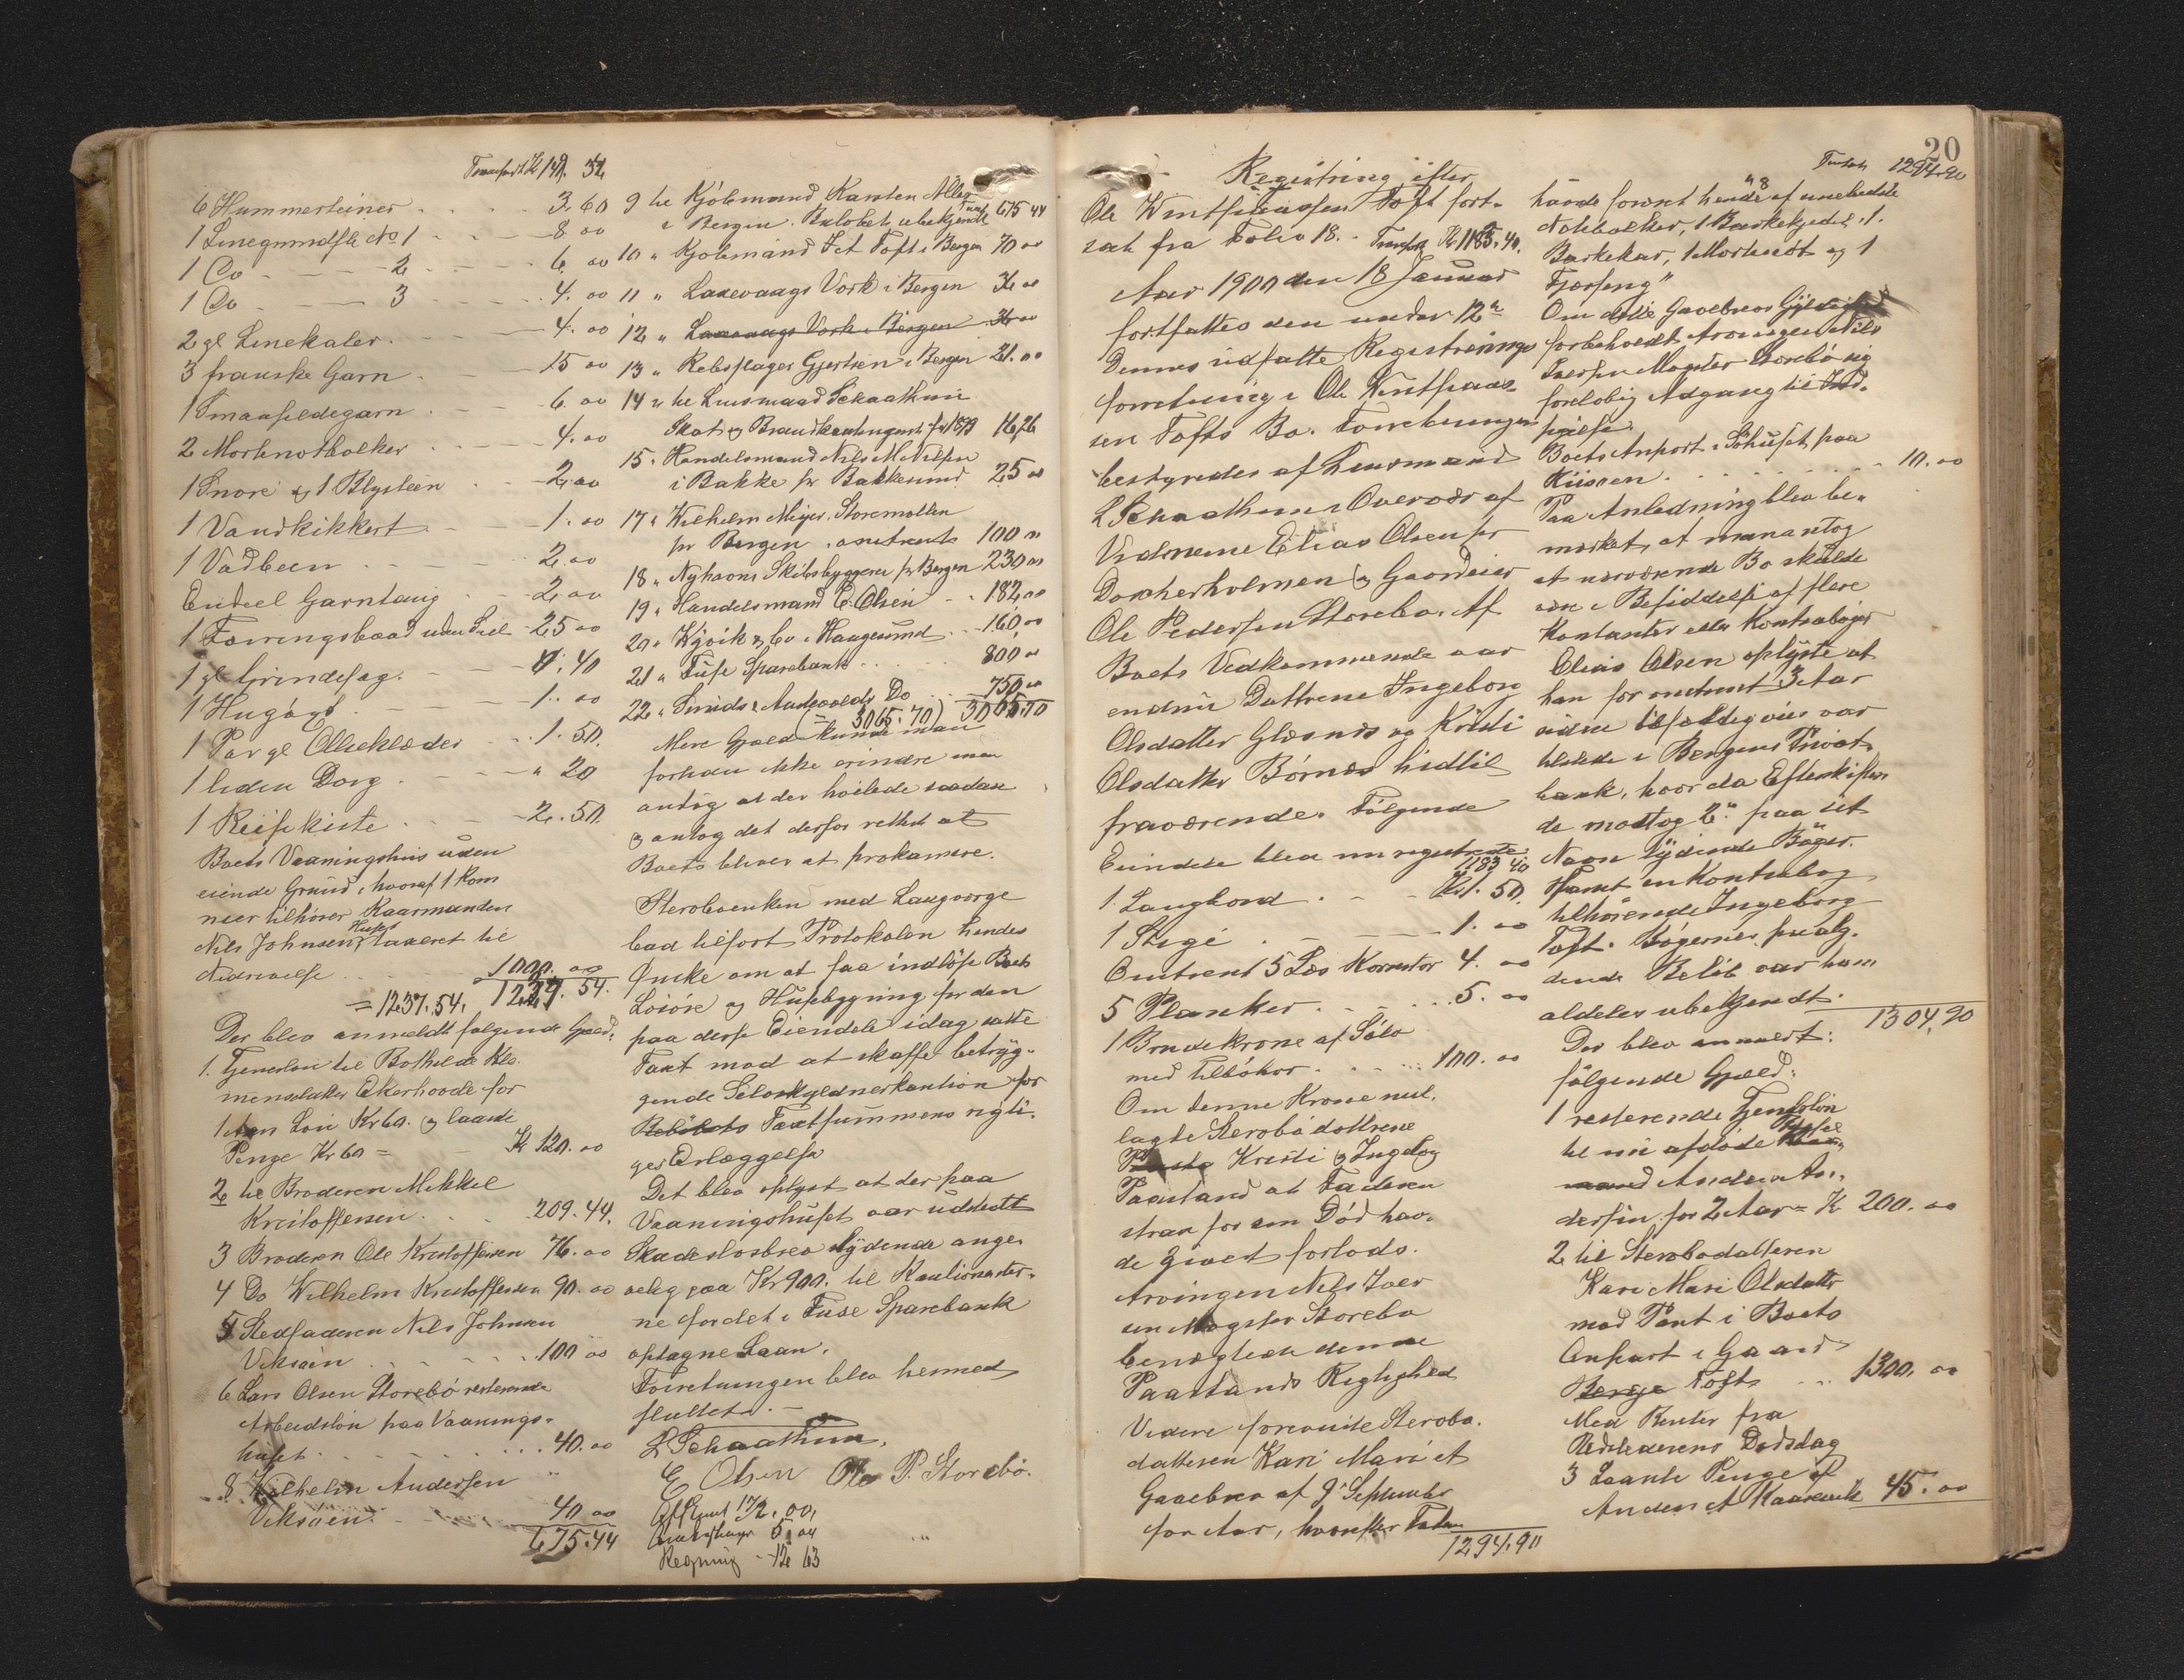 Transport Kr 149. 34
6 Hummerteiner . . . 3 60
1 Linegrundsle No 1 . . . 8 00
1 Do - - - 2 . . . 6 00
1 Do - - - 3 . . . 4. 00
2 gl Linekaler. . . 4. 00
3 franske Garn . . . 15 00
1 Smaasildegarn . . . 6. 00
2 Mortnotbolker . . . 4. 00
1 Snøre og 1 Blysteen . . . 2. 00
1 Vandkikkert . . . 1. 00
1 Vadbeen . . . 2. 00
Endeel Garntaug . . . 2. 00
1 Færingsbaad uden Seil . . 25 00
1 gl Grindesag. . . . 0. 40
1 Hugøgs . . . 1. 00
1 Par gl Olieklæder . . . 1. 50.
1 liden Dorg . . . " 20
1 Reisekiste . . . 2. 50.
Boets Vaaningshus uden
eiende Grund, hvoraf 1 Kam
mer tilhører Kaarmanden
Nils Johnsen, Huset taxeret til
Nedrivelse . . . 1000. 00
= 1237. 54. 1237. 54.
Der blev anmeldt følgende Gjæld:
1. Tjenerløn til Bothilde Kle-
mensdatter Ekerhovde for
1 Aar Løn Kr 60. og laante
Penge Kr 60 = Kr 120. 00
2 til Broderen Mikkel
Kristoffersen . . . 209. 44.
3 Broderen Ole Kristoffersen 76. 00
4 Do Wilhelm Kristoffersen 90. 00
5 Stedfaderen Nils Johnsen
Viksøen . . . 100 00
6 Lars Olsen Storebø resterende
Arbeidsløn paa Vaanings-
huset . . . 40. 00
8 Wilhelm Andersen
Viksøen. . . 40 00
675. 44
9 til Kjøbmand Karsten
i Bergen. Beløbet ubekjendt Transp 675 44
10 " Kjøbmand Jet Toft i Bergen 70 00
11 " Laxevaags Værk i Bergen 36 00
12 " Laxevaags Værk i Bergen 36 00
13 " Rebslager Gjertsen i Bergen 21. 00
14 " til Lensmand Schaathun
Skat og Brandkontingent for 1899 16,26
15. Handelsmand Nils M Nilsen
i Bakke pr Bakkesund 25 00
17 " Wilhelm Meyer, Storemøllen
pr Bergen, omtrent 100 00
18 " Nyhavns Skibsbyggeri pr Bergen 230 00
19 " Handelsmand E. Olsen . . 182, 00
20 " Wjoik & Co i Haugesund . . 160, 00
21 " Fuse Sparebank . . . 800, 00
22 " Sunds & Austevolds Do . . . 750, 00
(= 3065. 70) 3065, 70
Mere Gjæld kunde man
forhaan ikke erindre men
antog at der heilede saadan
og antog det derfor rettest at
Boets bliver at proklamere.
Stervboenken med Laugværge
bad tilført Protokolen hendes
Ønske om at faa indløse Boets
Løsøre og Husebygning for den
paa disse Eiendele idag satte
Taxt mod at skaffe betryg-
gende Selvskyldnerkaution for
Beløbets Taxtsummens rigti-
ges Erlæggelse
Det blev oplyst at der paa
Vaaningshuset var udstedt
Skadesløsbrev lydende ange-
velig paa Kr 900. til Kautionister-
ne for det i Fuse Sparebank
optagne Laan.
Forretningen blev hermed
sluttet. -
L Schaathun.
E Olsen Ole P. Storebø.
172. 00,
5. 04
Regning - 12 63
20
Registring efter
Ole Wintsentsen Toft fort-
sat fra Folio 18. - Transp Kr 1183. 40.
Aar 1900 den 18 Januar
fortsattes den under 12te
Dennes udsatte Registrerings
forretning i Ole Wintsent-
sen Tofts Bo. Forretningen
bestyredes af Lensmand
L Schaathun i Overvær af
Vidnerne Elias Olsen pr
Dorherholmen og Gaardeier
Ole Pedersen Storebø. Af
Boets Vedkommende var
endnu Døttrene Ingeborg
Olsdatter Glesnes og Kristi
Olsdatter Børnes hidtil
fraværende. Følgende
Eiendele blev nu registrerede:
1183 40
1 Langbord . . . Kr 1. 50.
1 Stige . . . 1. 00
Omtrent 5 Læs 4. 00
5 Planker . . . 5. 00
1 Brudekrone af Sølv
med Tilbehør . . . 100. 00
Om denne Krone ned-
lagte Stervbødøttrene
Kristi og Ingeborg
Paastand at Faderen
strax før sin Død hav-
de givet forlods.
Arvingen Nils Iver
sen Møgster Storebø
benegtede denne
Paastands Rigtighed
Videre foreviste Stervbo-
datteren Kari Mari et
Gavebrev af 9de September
for Aar, hvorefter Faderen
1294, 90
Transp 1294, 90
havde foræret hende af
Notbolker, 1 Barkekjedel, 1
Barkekar, 1 Mortnot og 1
Færseng"
Om dette Gavebrevs Gyldighed
forbeholdt Arvingen Nils
Iversen Møgster Storebø sig
foreløbig Adgang til Ind-
sigelse.
Boets Anport i Søhuset paa
Kiisøen . . . 10. 00
Paa Anledning blev be-
mærket, at man antog
at nærværende Bo skulde
være i Besiddelse af flere
Kontanter eller Kontrabøger
Elias Olsen oplyste at
han for omtrent 3 Aar
siden tilfældigvis var
tilstede i Bergens Privat-
bank, hvor da Efterskiften
de modtog 2de paa sit
Navn lydende Bøger.
Samt en Kontrabog
tilhørende Ingeborg
Toft. Bøgernes paalg-
dende Beløb var ham
aldeles ubekjendt.
1304, 90
Der blev anmeldt:
følgende Gjæld:
1 resterende Tjenerløn
til nu afdøde
Anders An-
dersen for 2 Aar = Kr 200. 00
2 til Stervbodatteren
Kari Mari Olsdatter
mod Pant i Boets
Anpart i Gaard
Berge Toft . . 1300. 00
Med Renter fra
Dødsdag
3 Laante Penge af
Anders A Kaarevik 45. 00